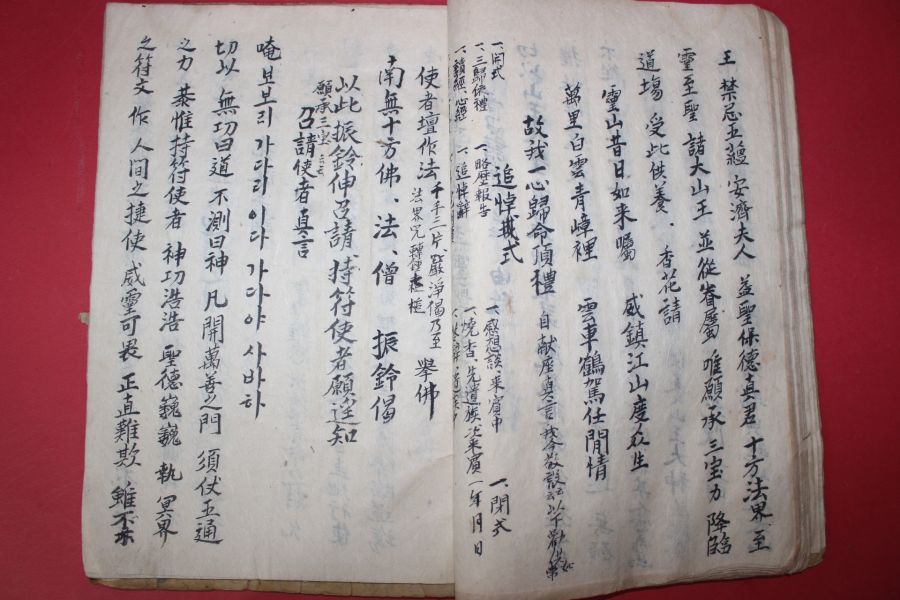 王 禁忌五蘊 安濟夫人 益聖保德真君 十方法界 至
靈至聖 諸大山王 並從眷屬 唯願承三宝力 降臨
道場 受此供養 香花請
靈山昔日如来囑 威鎮江山度众生
萬里白雲青嶂裡 雲車鶴駕任閒情
故我一心歸命頂禮 自献座真言
追悼式
一、開式 一、略歷報告 一、感想談、来賓中 一、閉式
一、三歸依禮 一、追悼辭 一、燒香、先遺族 次来賓 一年 月 日
一、讀經、心經
使者壇作法 千手一片、嚴淨偈乃至 擧佛
南無十方佛、法、僧 振鈴偈
以此振鈴伸召請 持符使者願遙知
願承三宝 云云
召請使者真言
唵 보보리 가다리 이다 가다야 사바하
切以 無功曰道 不測曰神 凡開萬善之門 須伏五通
之力 恭惟持符使者 神功浩浩 聖德巍巍 執 冥界
之符文 作 人间之捷使 威靈可畏 正直難欺 雖不